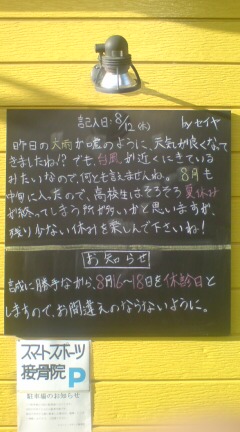 記入日:8/12(水) byセイヤ
昨日の大雨が嘘のように、天気が良くなって
きましたね!?でも、台風が近くにきている
みたいなので、何とも言えませんね。8月も
中旬に入ったので、高校生はそろそろ夏休み
が終ってしまう所が多いかと思いますが、
残り少ない休みを楽しんで下さいね!
お知らせ
誠に勝手ながら、8月16~18日を休診日と
しますので、お間違えのないように。
スマートスポーツ
接骨院 P
駐車場のお知らせ